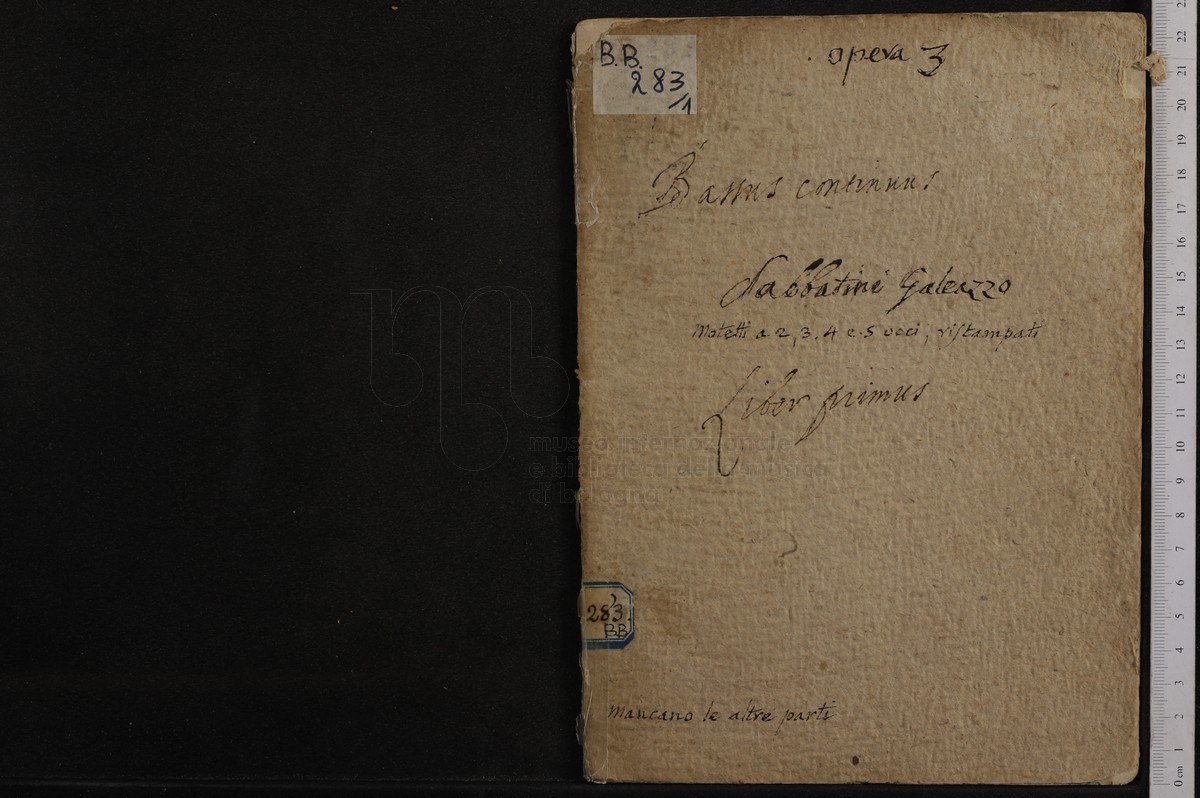 B.B.
283
/1
opera 3
Bassus continuus
Sabbatini Galeazzo
Motetti a 2, 3. 4 e 5 voci, ristampati
Liber primus
museo internazionale
e biblioteca della musica
di bologna
283.
BB
mancano le altre parti
22
21
20
19
18
17
16
15
14
13
12
11
10
9
8
7
6
5
4
3
2
1
0 cm